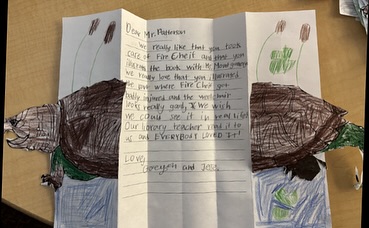 Dear Mr. Patterson
We really like that you took
care of Fire Cheif and that you
sharing the book with
we really love that you illustrated
the book where Fire Cheif got
badly injured and the
looks really good, We wish
we could see it in real life!
Our library teacher read it to
us and EVERYBODY LOVED IT!
LOVE,
and Jese.